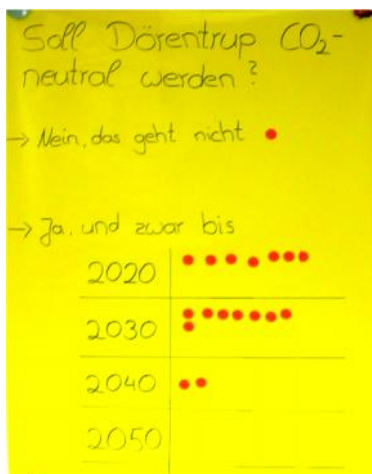 Soll Dörentrup CO₂-
neutral werden?
→ Nein, das geht nicht
→ Ja, und zwar bis
2020
2030
2040
2050